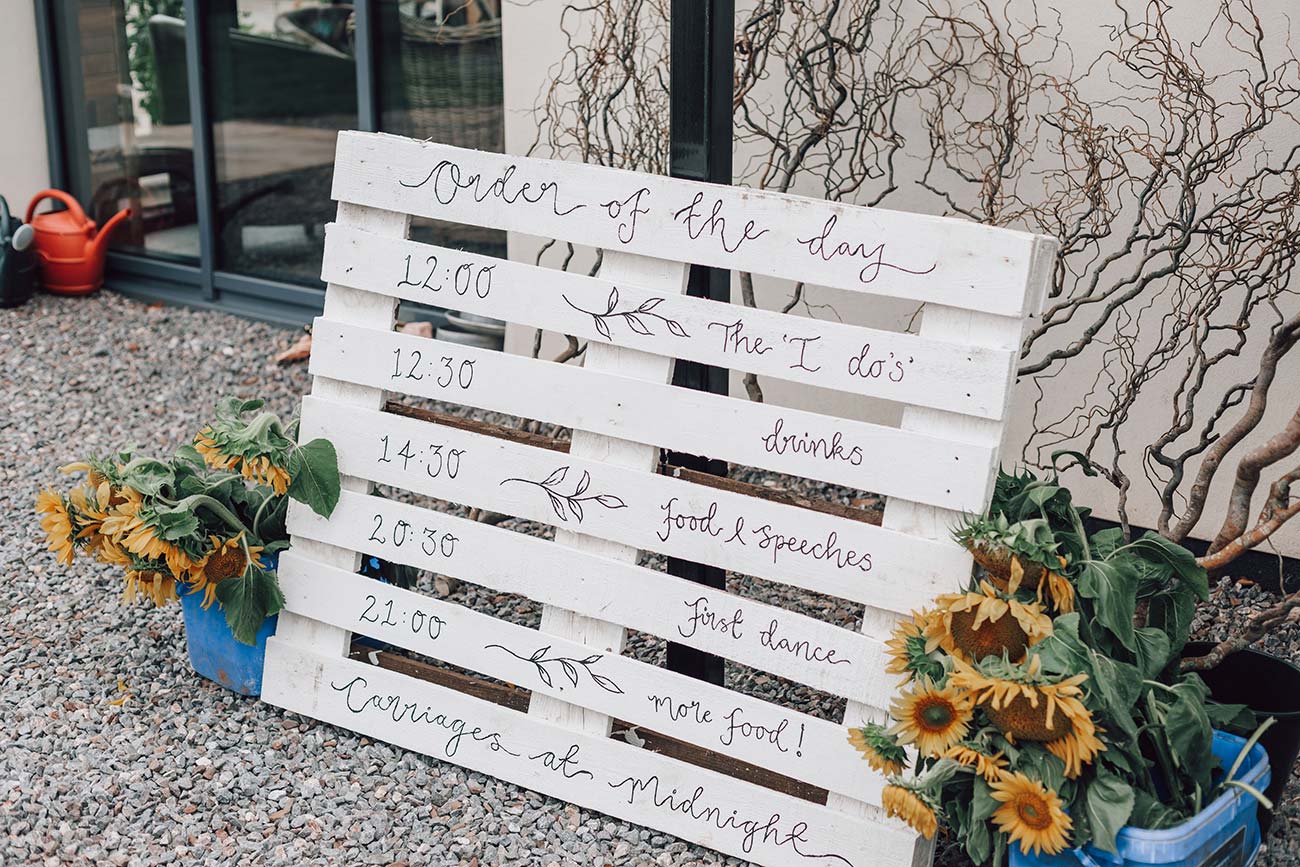 Order of the day
12:00 The 'I do's'
12:30 drinks
14:30 food & speeches
20:30 first dance
21:00 more food!
Carriages at Midnight